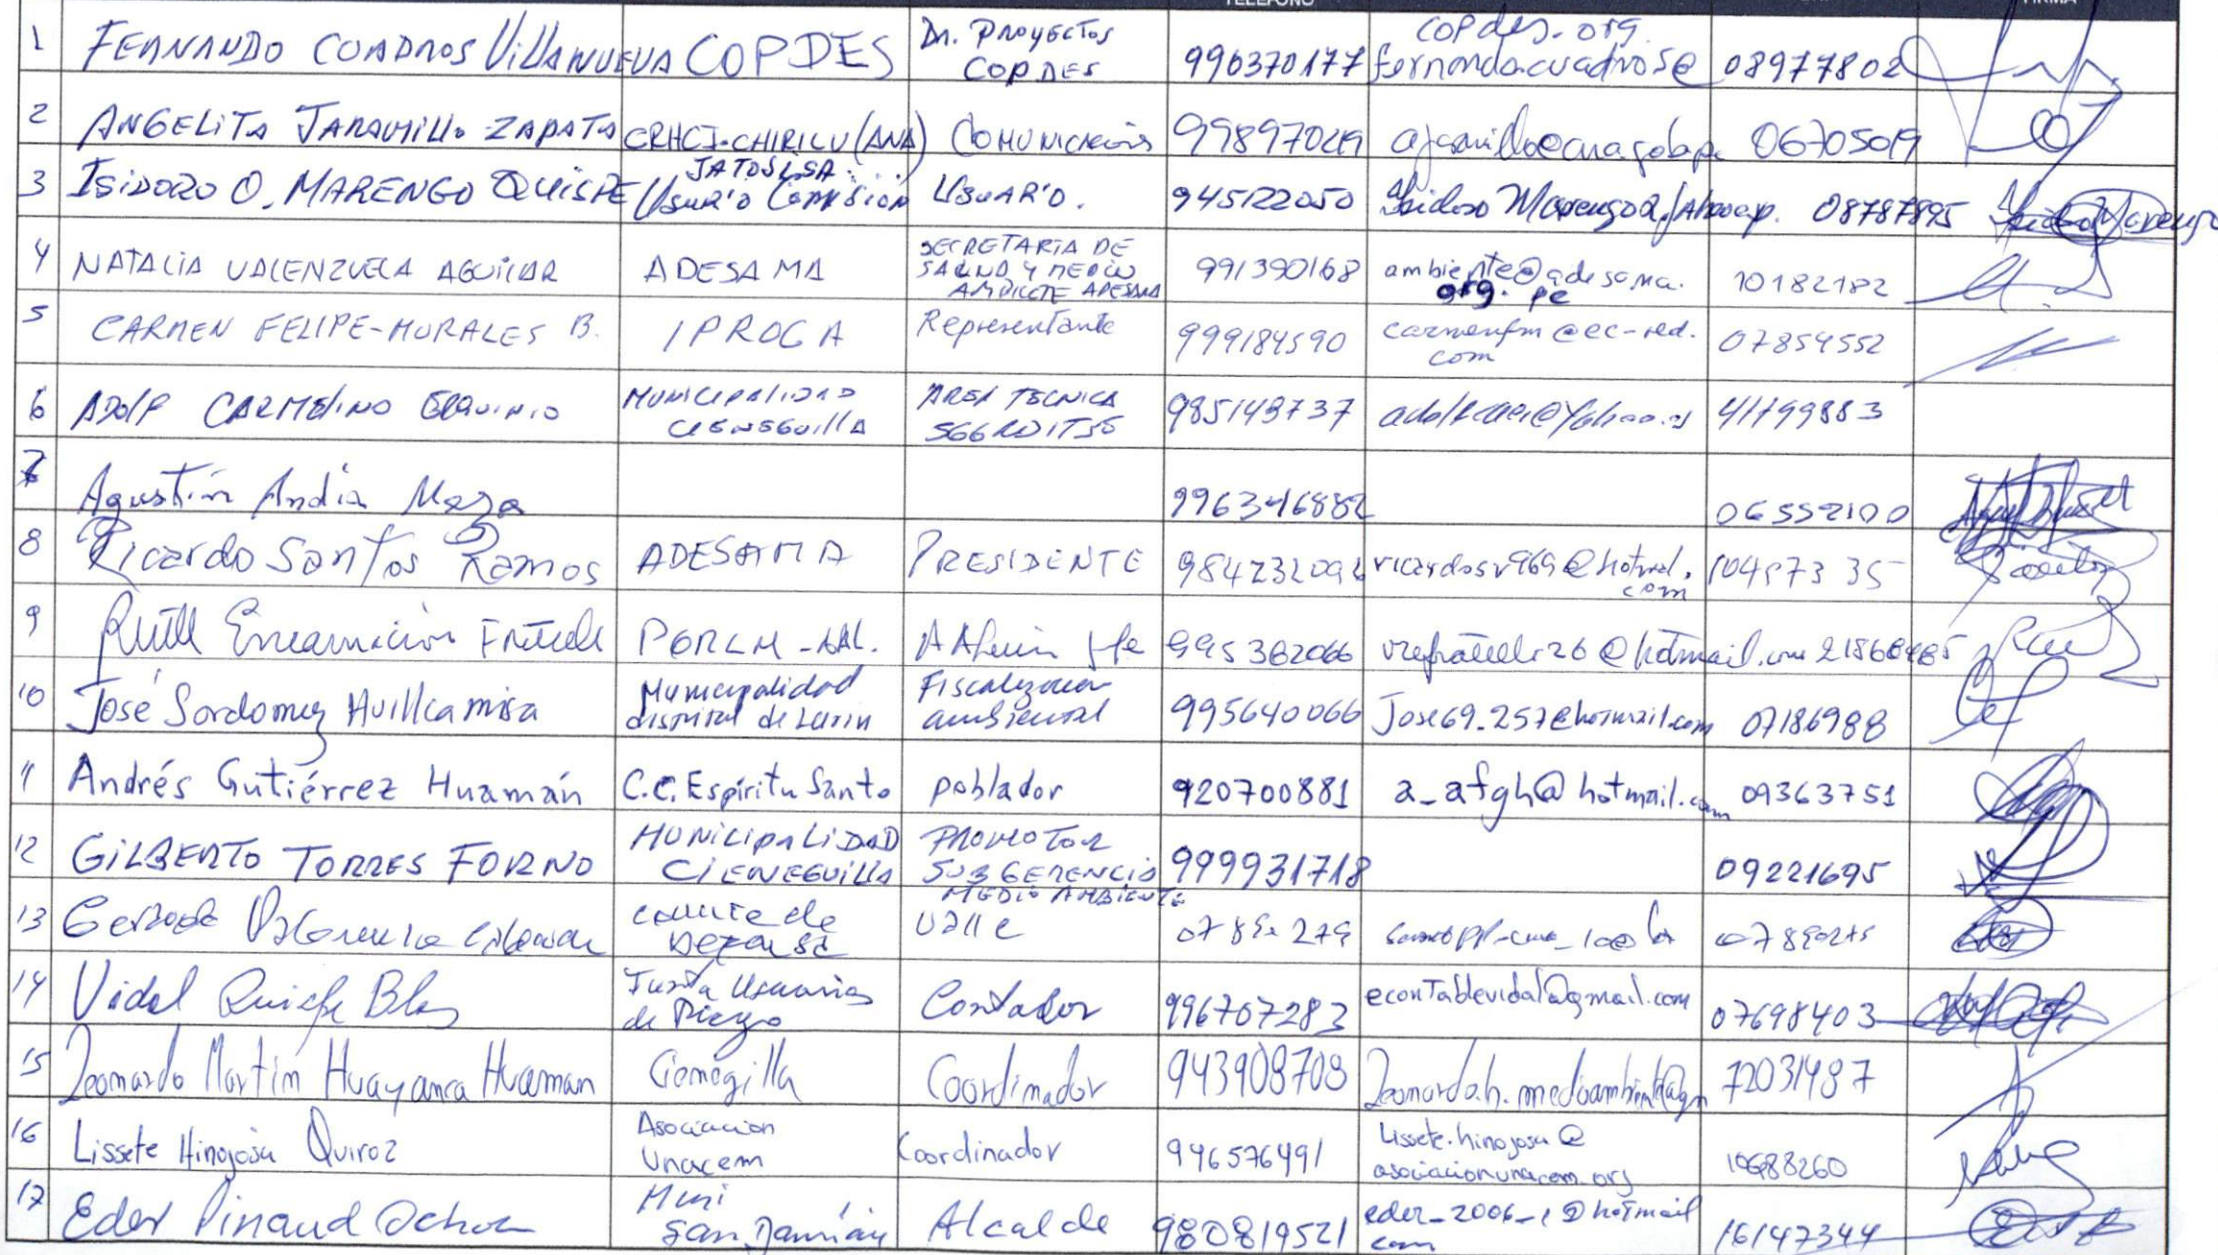 TELÉFONO FIRMA
1 FERNANDO CUADROS VILLANUEVA COPDES Dr. PROYECTOS COPDES 996370177 fernando.cuadros@ copdes.org. 08977802
2 ANGELITA JARAMILLO ZAPATA CRHCI-CHIRILU (ANA) COMUNICACIÓN 998970219 06705019
3 ISIDORO O. MARENGO QUISPE JATOSISA Usuario Comisión USUARIO. 945122050 08787895
4 NATALIA VALENZUELA AGUILAR ADESAMA SECRETARIA DE SALUD Y MEDIO AMBIENTE ADESAMA 991390168 ambiente@adesama.org.pe 10182182
5 CARMEN FELIPE-MORALES B. IPROGA Representante 999184590 carmenfm@ec-red.com 07854552
6 ADOLF CARMELINO MUNICIPALIDAD CIENEGUILLA AREA TECNICA 985143737 41799883
7 Agustín Andia Meza 996346882 06552100
8 Ricardo Santos Ramos ADESAMA PRESIDENTE 984232092 ricardosr969@hotmal.com 10497335
9 Ruth Encarnación 995382066
10 José Sordomez Huillcamisa Municipalidad distrital de Lurin Fiscalización ambiental 995640066 Jose69.257@hotmail.com 07186988
11 Andrés Gutiérrez Huamán C.C. Espíritu Santo poblador 920700881 a_afgh@hotmail.com 09363751
12 GILBERTO TORRES FORNO MUNICIPALIDAD CIENEGUILLA PROMOTOR SUBGERENCIA MEDIO AMBIENTE 999931718 09221695
13 comite de Defensa valle
14 Vidal Quispe Blas Junta Usuarios de Riego Contador 996707283 econtablevidal@gmail.com 07698403
15 Leonardo Martin Huayanca Huaman Cienegilla Coordinador 943908708 72031487
16 Lissete Hinojosa Quiroz Asociacion Unacem Coordinador 996576491 Lissete.hinojosa@asociacionunacem.org 10688260
17 Eder Pinaud Ochoa Muni San Damián Alcalde 980819521 eder_2006_1@hotmail.com 16147344